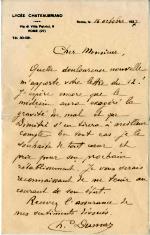 LYCÉE CHATEAUBRIAND
Via di Villa Patrizi, 9
ROME (27)
Rome, le 16 octobre 1937
Cher Monsieur,
Quelle douloureuse nouvelle
m'apporte votre lettre du 12 !
J'espère encore que le
médecin aura exagéré la
gravité du mal et que
à meilleur
compte. En tout cas je le
souhaite de tout cœur et
prie pour son prochain
rétablissement. Je vous serais
reconnaissant de me tenir au
courant de son état.
Recevez l'assurance de
mes sentiments dévoués